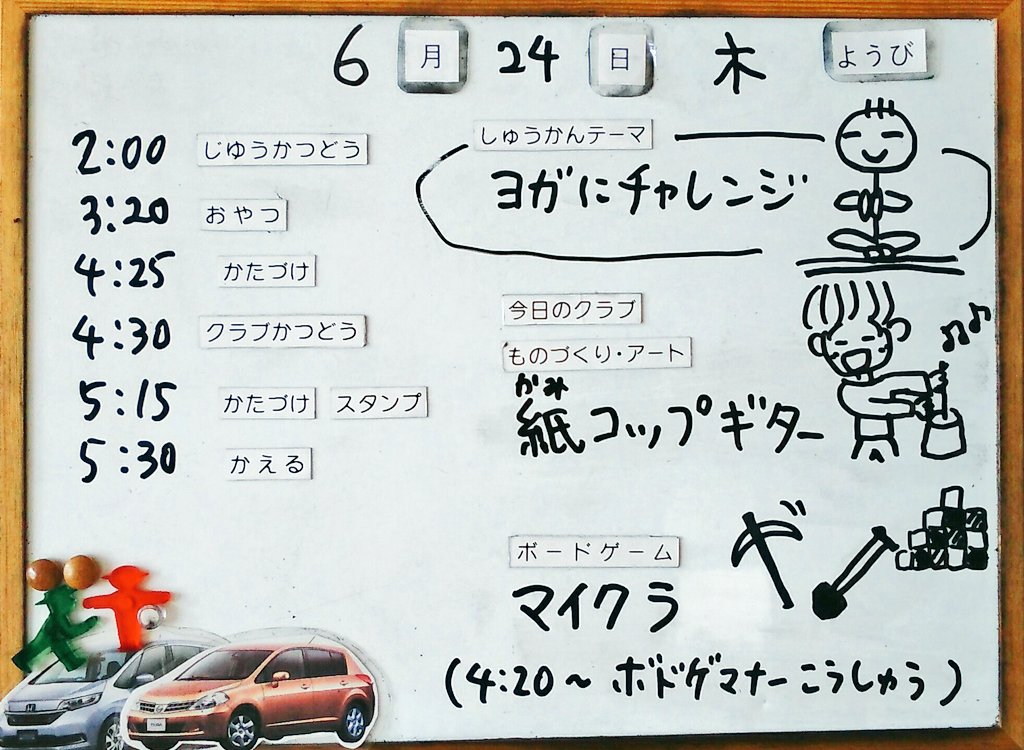 6 月 24 日 木 ようび
2:00 じゆうかつどう
3:20 おやつ
4:25 かたづけ
4:30 クラブかつどう
5:15 かたづけ スタンプ
5:30 かえる
しゅうかんテーマ
ヨガにチャレンジ
今日のクラブ
ものづくり・アート
かみ
紙コップギター
ボードゲーム
マイクラ
(4:20～ ボドゲマナーこうしゅう)